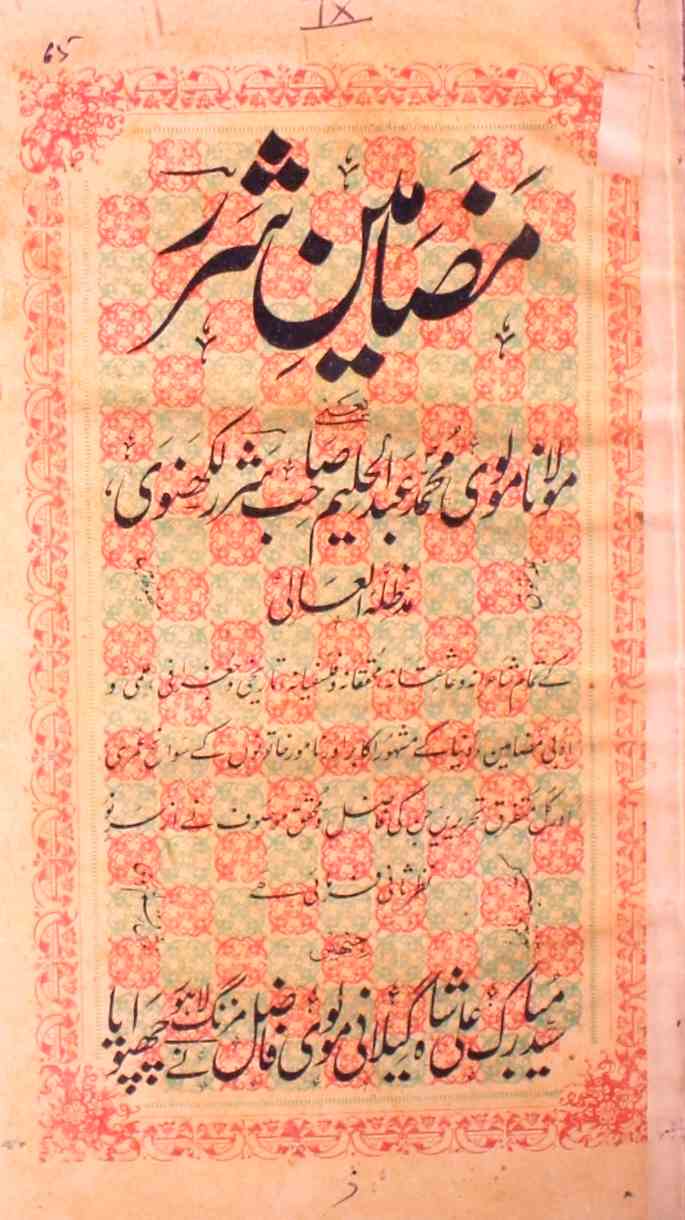 IX
65
مضامینِ شرر
یعنے
مولانا مولوی محمد عبدالحلیم صاحب شرر لکھنوی
مدظلہ العالی
کے تمام شاعرانہ و عاشقانہ، محققانہ و فلسفیانہ، تاریخی و جغرافی، علمی و
ادبی مضامین، دنیا کے مشہور اکابر اور نامور خاتونوں کے سوانح عمری
اور کل متفرق تحریریں جن کی فاضل و محقق موصوف نے از سرِ نو
نظر ثانی فرمائی ہے
جنہیں
سید مبارک علی شاہ گیلانی مولوی فاضل مزنگ لاہور نے چھپوایا